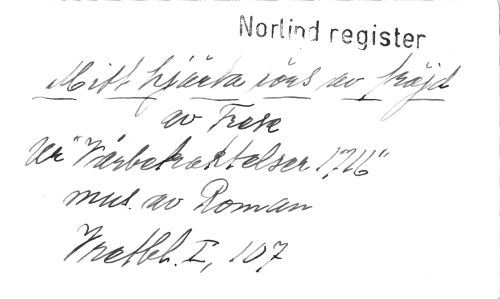 Norlind register
Mitt hjärta rörs av fröjd
av Frese
ur "Vårbetraktelser 1716"
mus. av Roman
Vretbl. I, 107